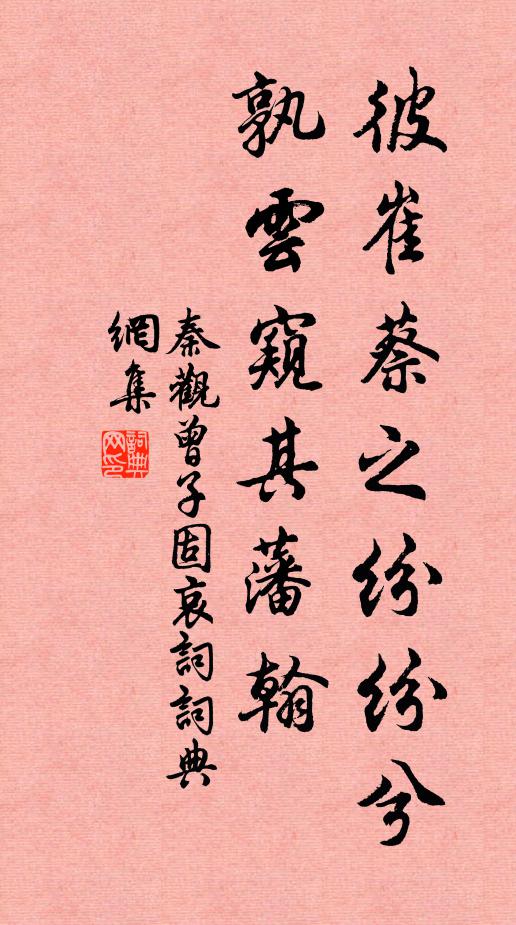 彼崔蔡之紛紛兮
孰雲窺其藩翰
秦觀曾子固哀詞詞典
網集
詞典
网印